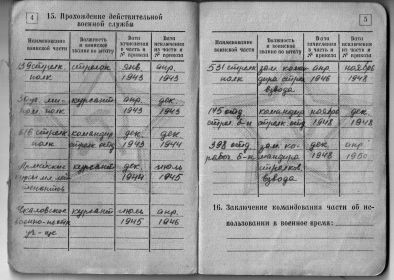 4
15. Прохождение действительной
военной службы
Наименование
воинской части
Должность
и воинское
звание по штату
Дата
зачисления
в часть и
№ приказа
Дата
исключения
из части и
№ приказа
139 стрелк.
полк
стрелок
янв
1943
апр.
1943
полк
курсант
апр.
1943
дек.
1943
616 стрелк.
полк
командир
стрелк. отд
дек.
1943
дек
1944
Армейские
курсы
курсант
дек
1944
июль
1945
Чкаловское
военно-пехтн
уч-ще
курсант
июль
1945
апр.
1946
5
Наименование
воинской части
Должность
и воинское
звание по штату
Дата
зачисления
в часть и
№ приказа
Дата
исключения
из части и
№ приказа
531 стрелк
полк
зам. коман-
дира стрел.
взвода
апр.
1946
ноябрь
1948
145 отд
стрел. б-н
командир
стрелк. отд.
ноябрь
1948
дек.
1948
398 отд.
рабоч. б-н
зам. ко-
мандира
стрелков.
взвода
дек.
1948
апр.
1950
16. Заключение командования части об ис-
пользовании в военное время: